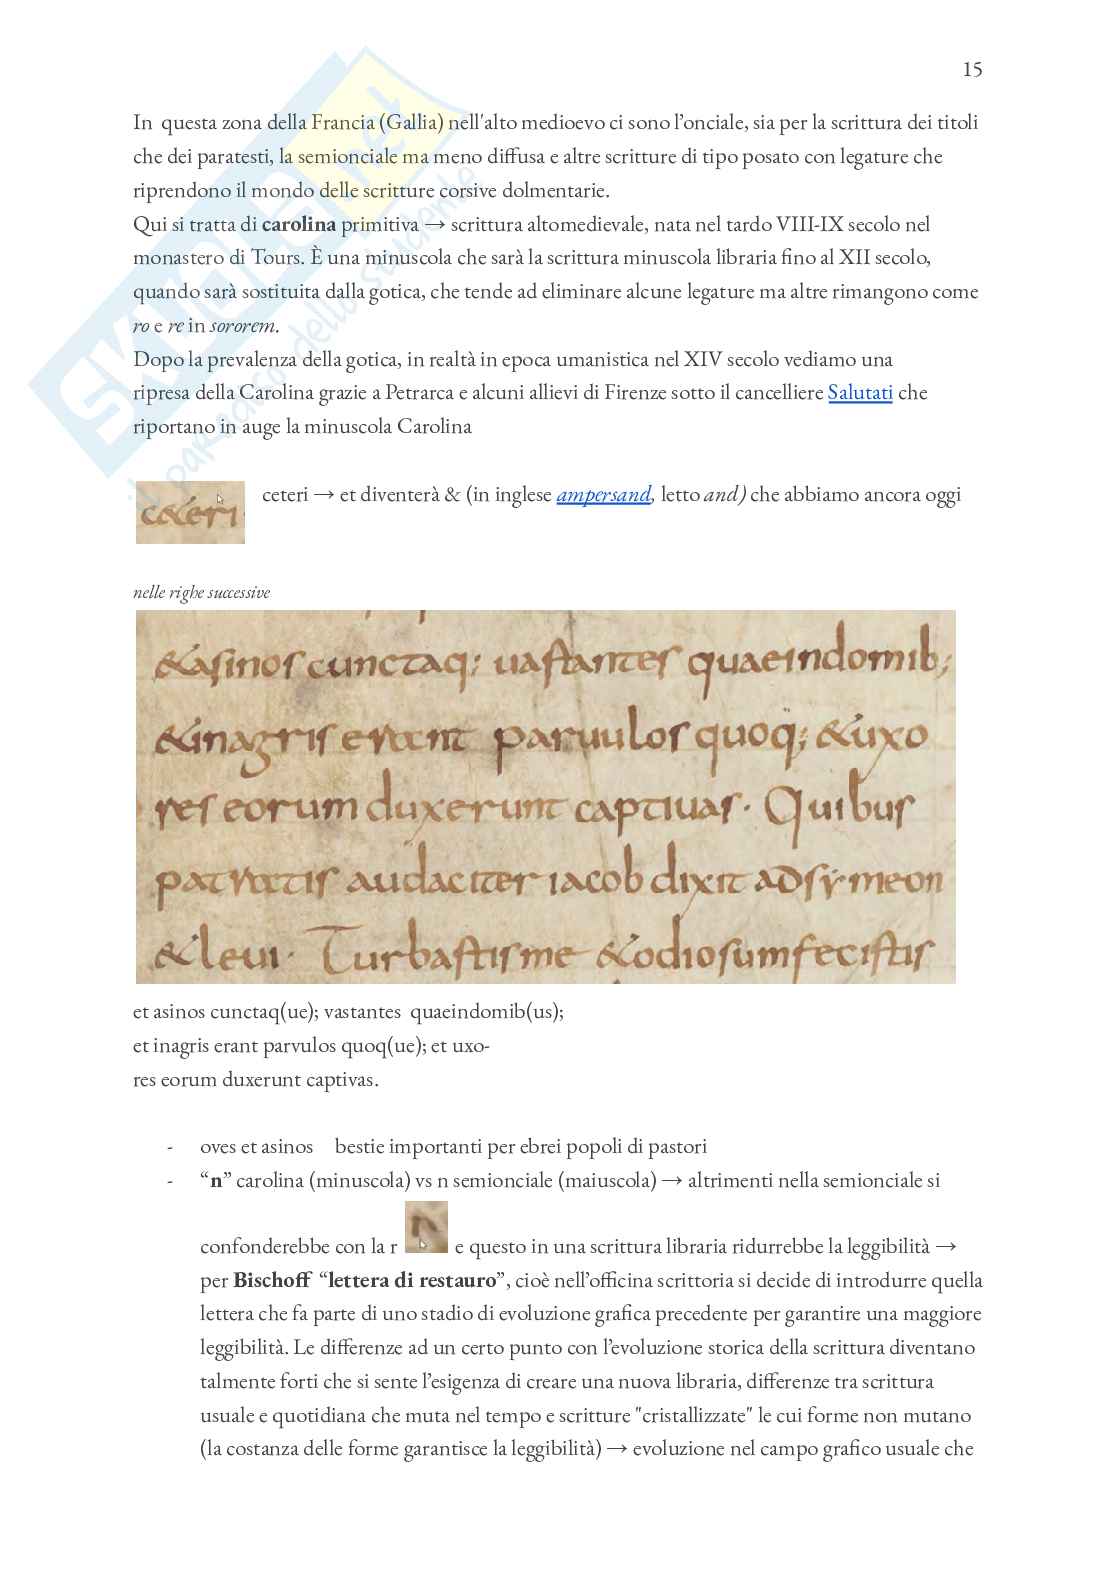 15
In questa zona della Francia (Gallia) nell'alto medioevo ci sono l’onciale, sia per la scrittura dei titoli
che dei paratesti, la semionciale ma meno diffusa e altre scritture di tipo posato con legature che
riprendono il mondo delle scritture corsive dolmentarie.
Qui si tratta di carolina primitiva → scrittura altomedievale, nata nel tardo VIII-IX secolo nel
monastero di Tours. È una minuscola che sarà la scrittura minuscola libraria fino al XII secolo,
quando sarà sostituita dalla gotica, che tende ad eliminare alcune legature ma altre rimangono come
ro e re in sororem.
Dopo la prevalenza della gotica, in realtà in epoca umanistica nel XIV secolo vediamo una
ripresa della Carolina grazie a Petrarca e alcuni allievi di Firenze sotto il cancelliere Salutati che
riportano in auge la minuscola Carolina
c&eri
ceteri → et diventerà & (in inglese ampersand, letto and) che abbiamo ancora oggi
nelle righe successive
&asinos cunctaq; uastantes quaeindomib;
&inagris erant paruulos quoq; &uxo
res eorum duxerunt captiuas. Quibus
patratis audaciter iacob dixit ad symeon
&leui. Turbastis me &odiosum fecistis
et asinos cunctaq(ue); vastantes quaeindomib(us);
et inagris erant parvulos quoq(ue); et uxo-
res eorum duxerunt captivas.
- oves et asinos bestie importanti per ebrei popoli di pastori
- “n” carolina (minuscola) vs n semionciale (maiuscola) → altrimenti nella semionciale si
confonderebbe con la r e questo in una scrittura libraria ridurrebbe la leggibilità →
per Bischoff “lettera di restauro”, cioè nell’officina scrittoria si decide di introdurre quella
lettera che fa parte di uno stadio di evoluzione grafica precedente per garantire una maggiore
leggibilità. Le differenze ad un certo punto con l’evoluzione storica della scrittura diventano
talmente forti che si sente l’esigenza di creare una nuova libraria, differenze tra scrittura
usuale e quotidiana che muta nel tempo e scritture "cristallizzate" le cui forme non mutano
(la costanza delle forme garantisce la leggibilità) → evoluzione nel campo grafico usuale che
SKUOLA.net
il paradiso dello studente